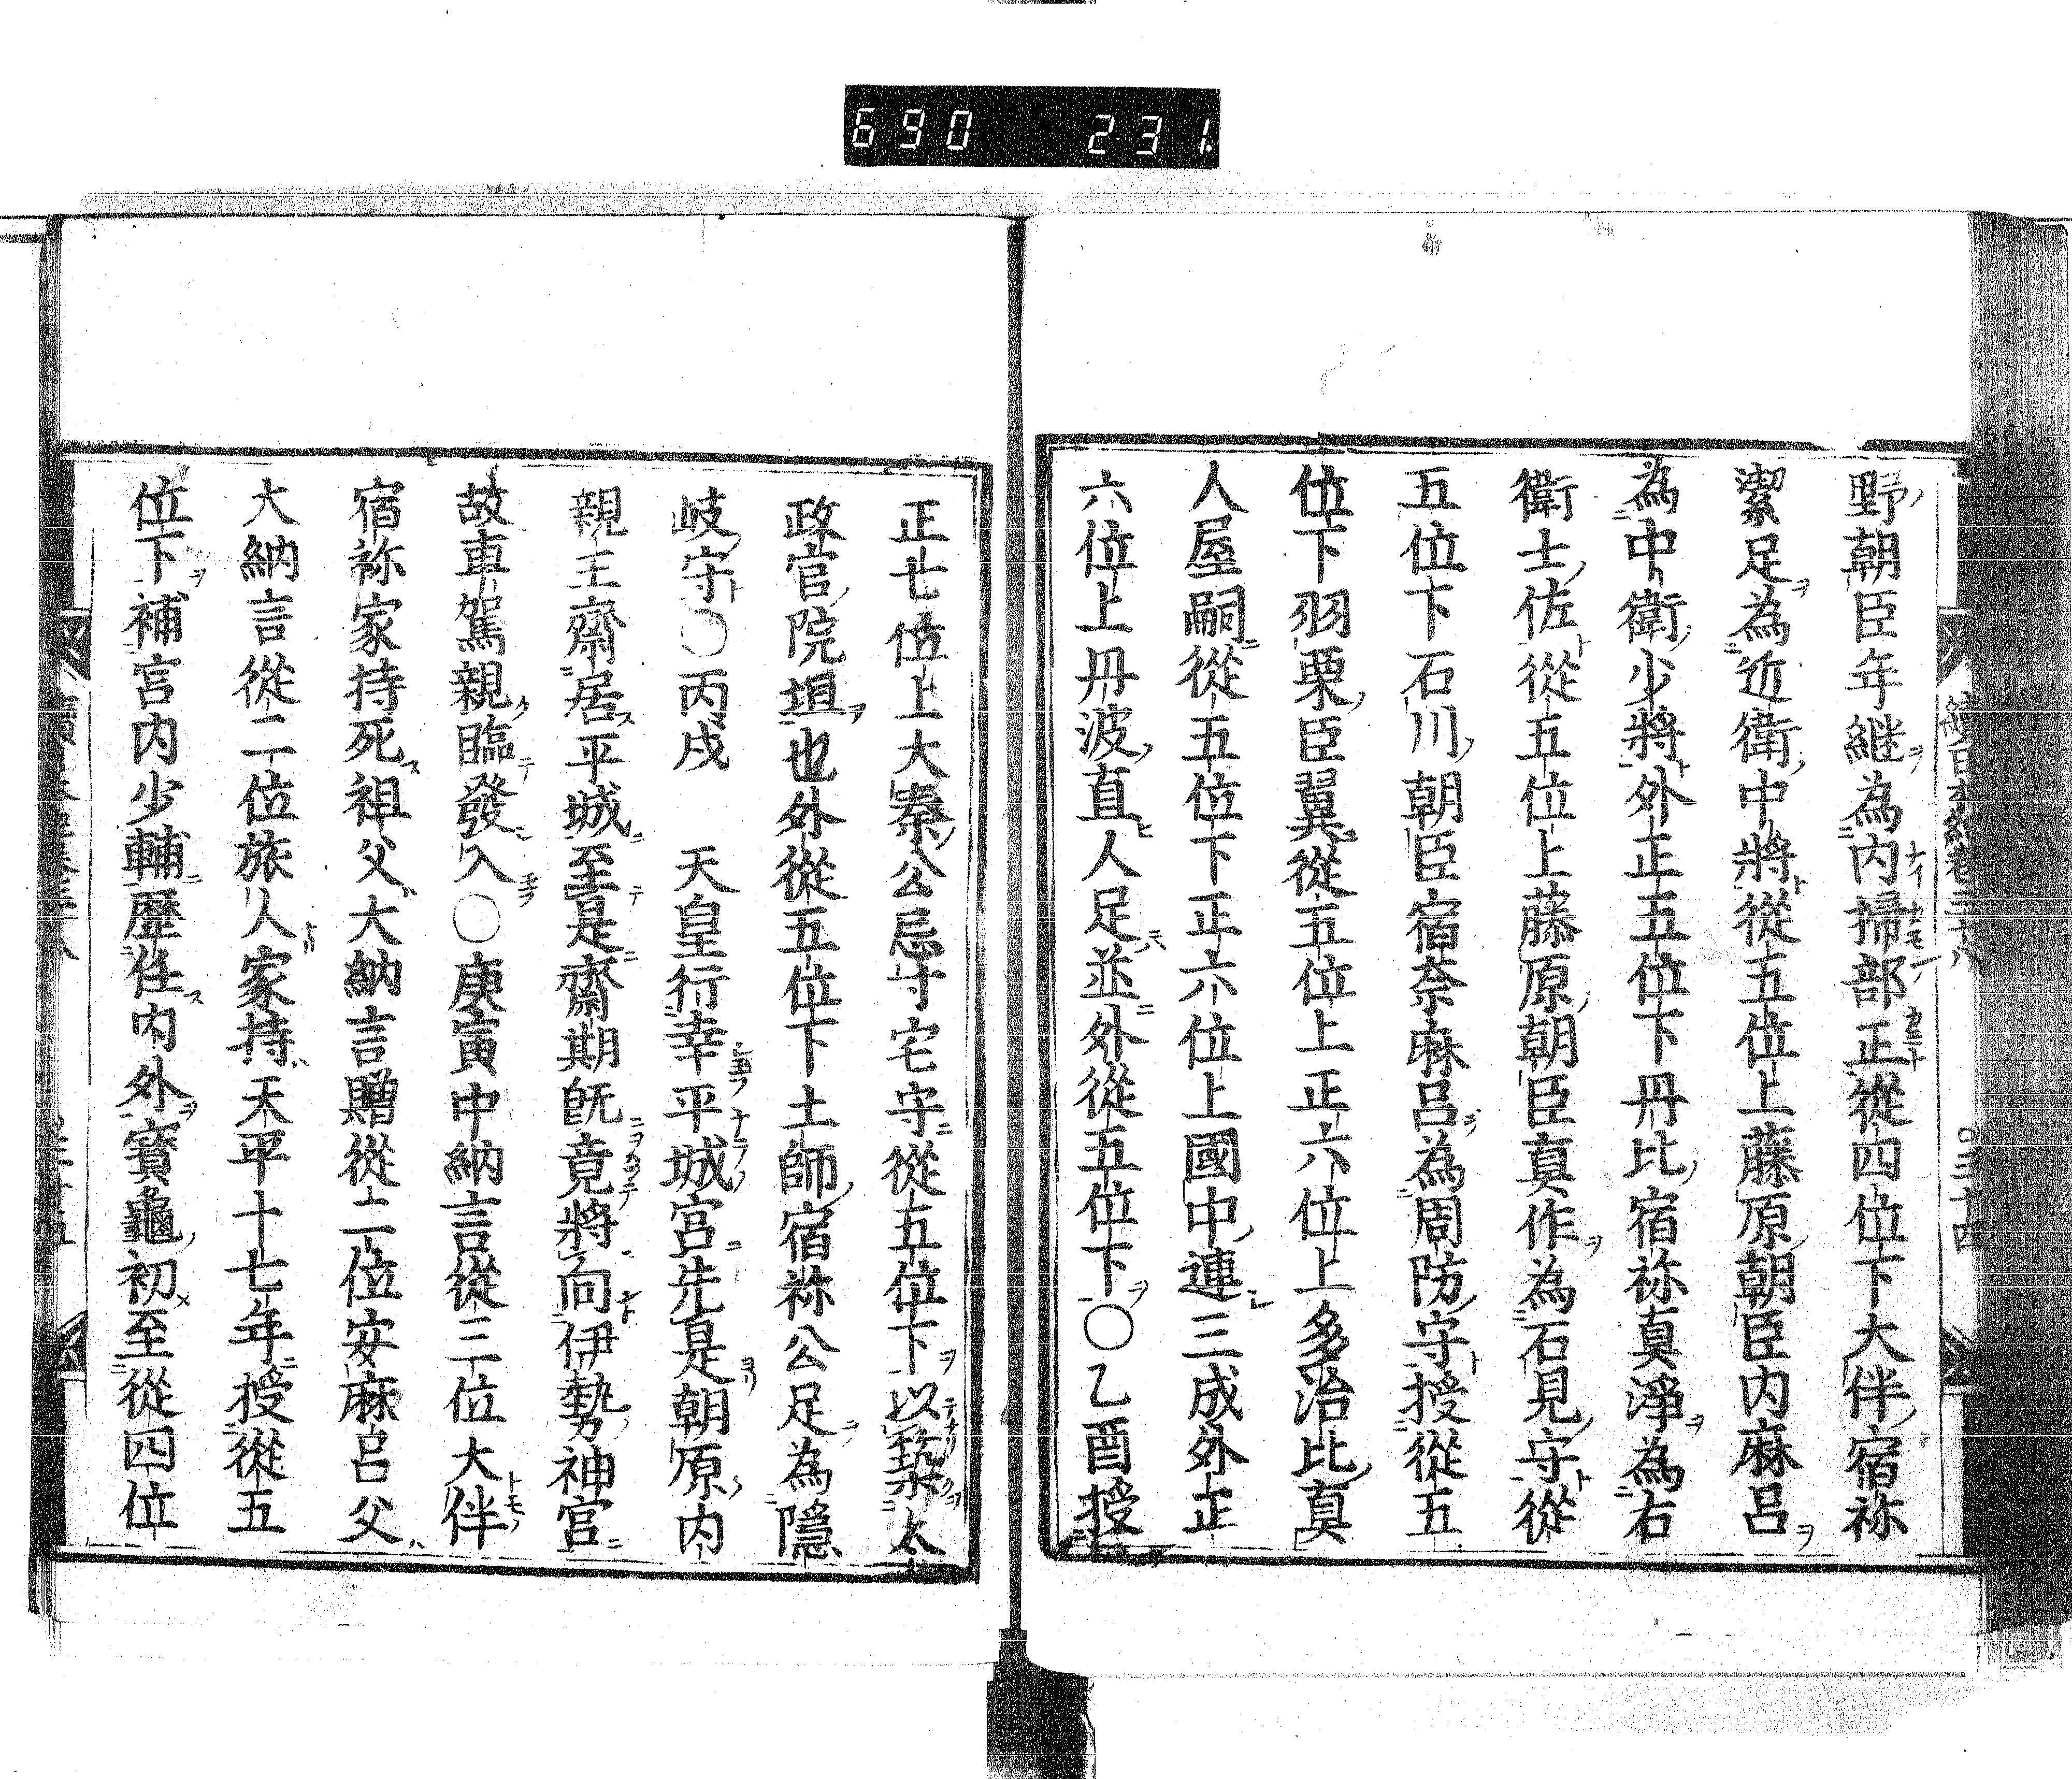 690 231
續日本紀卷三十八 〇三十四
野朝臣年継為内掃部正從四位下大伴宿祢
潔足為近衛中將從五位上藤原朝臣内麻呂
為中衛少將外正五位下丹比宿祢真淨為右
衛士佐從五位上藤原朝臣真作為石見守從
五位下石川朝臣宿奈麻呂為周防守授從五
位下羽栗臣翼從五位上正六位上多治比真
人屋嗣從五位下正六位上國中連三成外正
六位上丹波直人足並外從五位下〇乙酉授
正七位上大秦公忌寸宅守從五位下以築太
政官院垣也外從五位下土師宿祢公足為隱
岐守〇丙戌 天皇行幸平城宮先是朝原内
親王齋居平城至是齋期既竟將向伊勢神宮
故車駕親臨發入〇庚寅中納言從三位大伴
宿祢家持死祖父大納言贈從二位安麻呂父
大納言從二位旅人家持天平十七年授從五
位下補宮内少輔歷任内外寶龜初至從四位